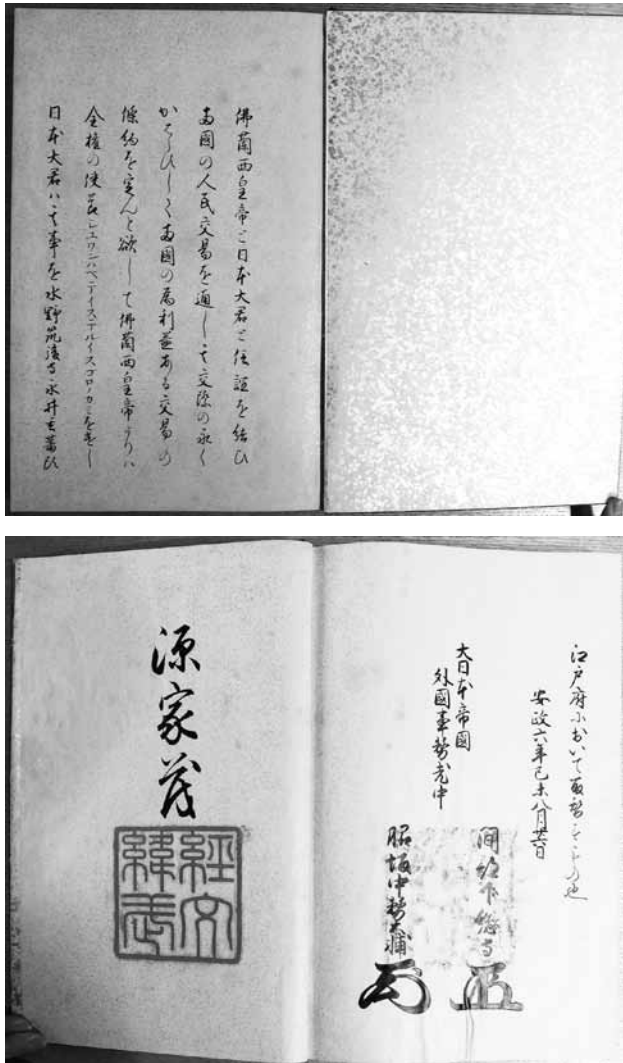 佛蘭西皇帝と日本大君と信誼を結ひ
両國の人民交易を通し其交際の永く
両國の為利益ある交易の
條約を定んと欲して佛蘭西皇帝よりハ
全権の使節
日本大君ハ其事を水野筑後守永井玄蕃
江戸府において取替するもの也
安政六年己未八月廿六日
大日本帝國
外國事務老中
間部下総守
脇坂中務大輔
源家茂
經文
緯武